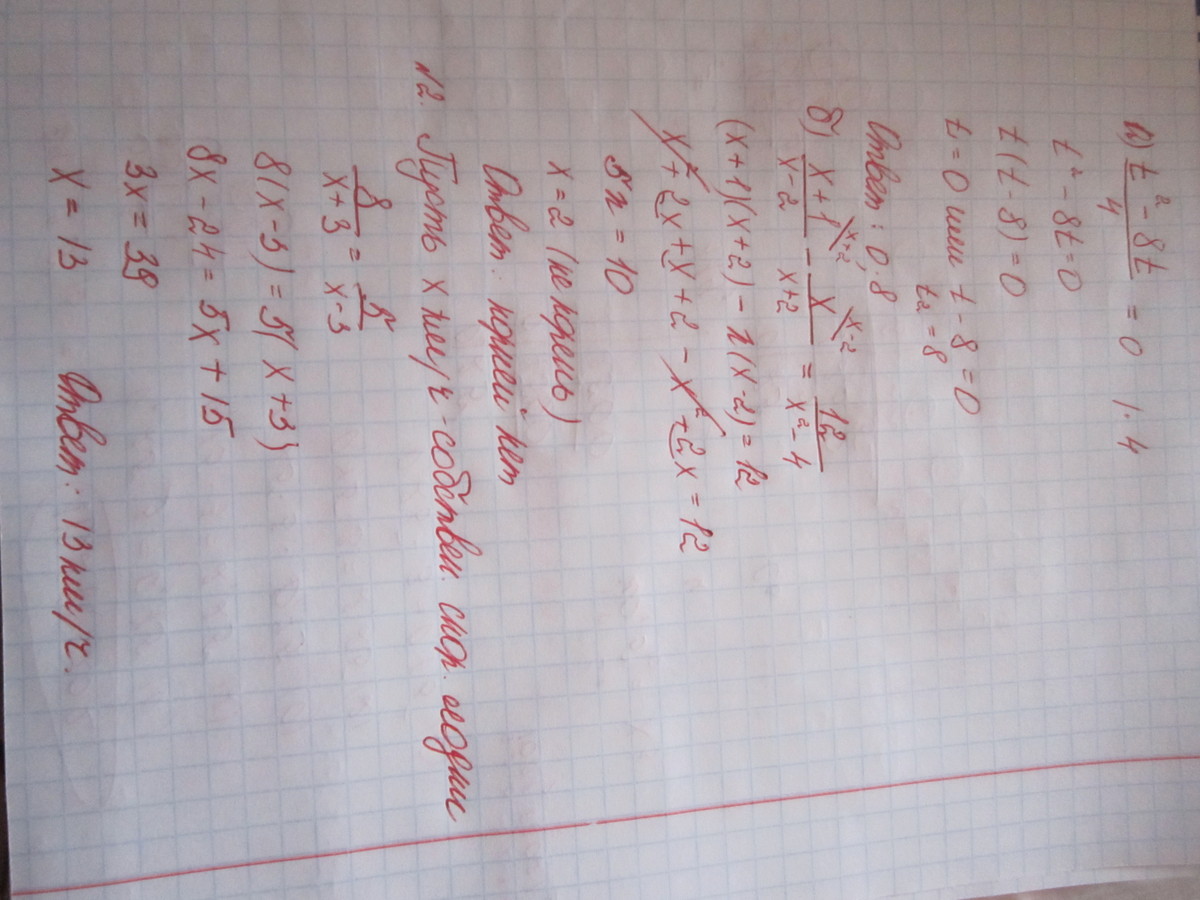 а) t² - 8t / 4 = 0 | · 4
t² - 8t = 0
t(t - 8) = 0
t₁ = 0 или t - 8 = 0
t₂ = 8
Ответ: 0; 8
б) x + 1 / x - 2 (x+2) - x / x + 2 (x-2) = 12 / x² - 4
(x + 1)(x + 2) - x(x - 2) = 12
x² + 2x + x + 2 - x² + 2x = 12
5x = 10
x = 2 (не корень)
Ответ: корней нет
№2. Пусть x км/ч - собствен. скор. лодки
8 / x + 3 = 5 / x - 3
8(x - 3) = 5(x + 3)
8x - 24 = 5x + 15
3x = 39
x = 13 Ответ: 13 км/ч.